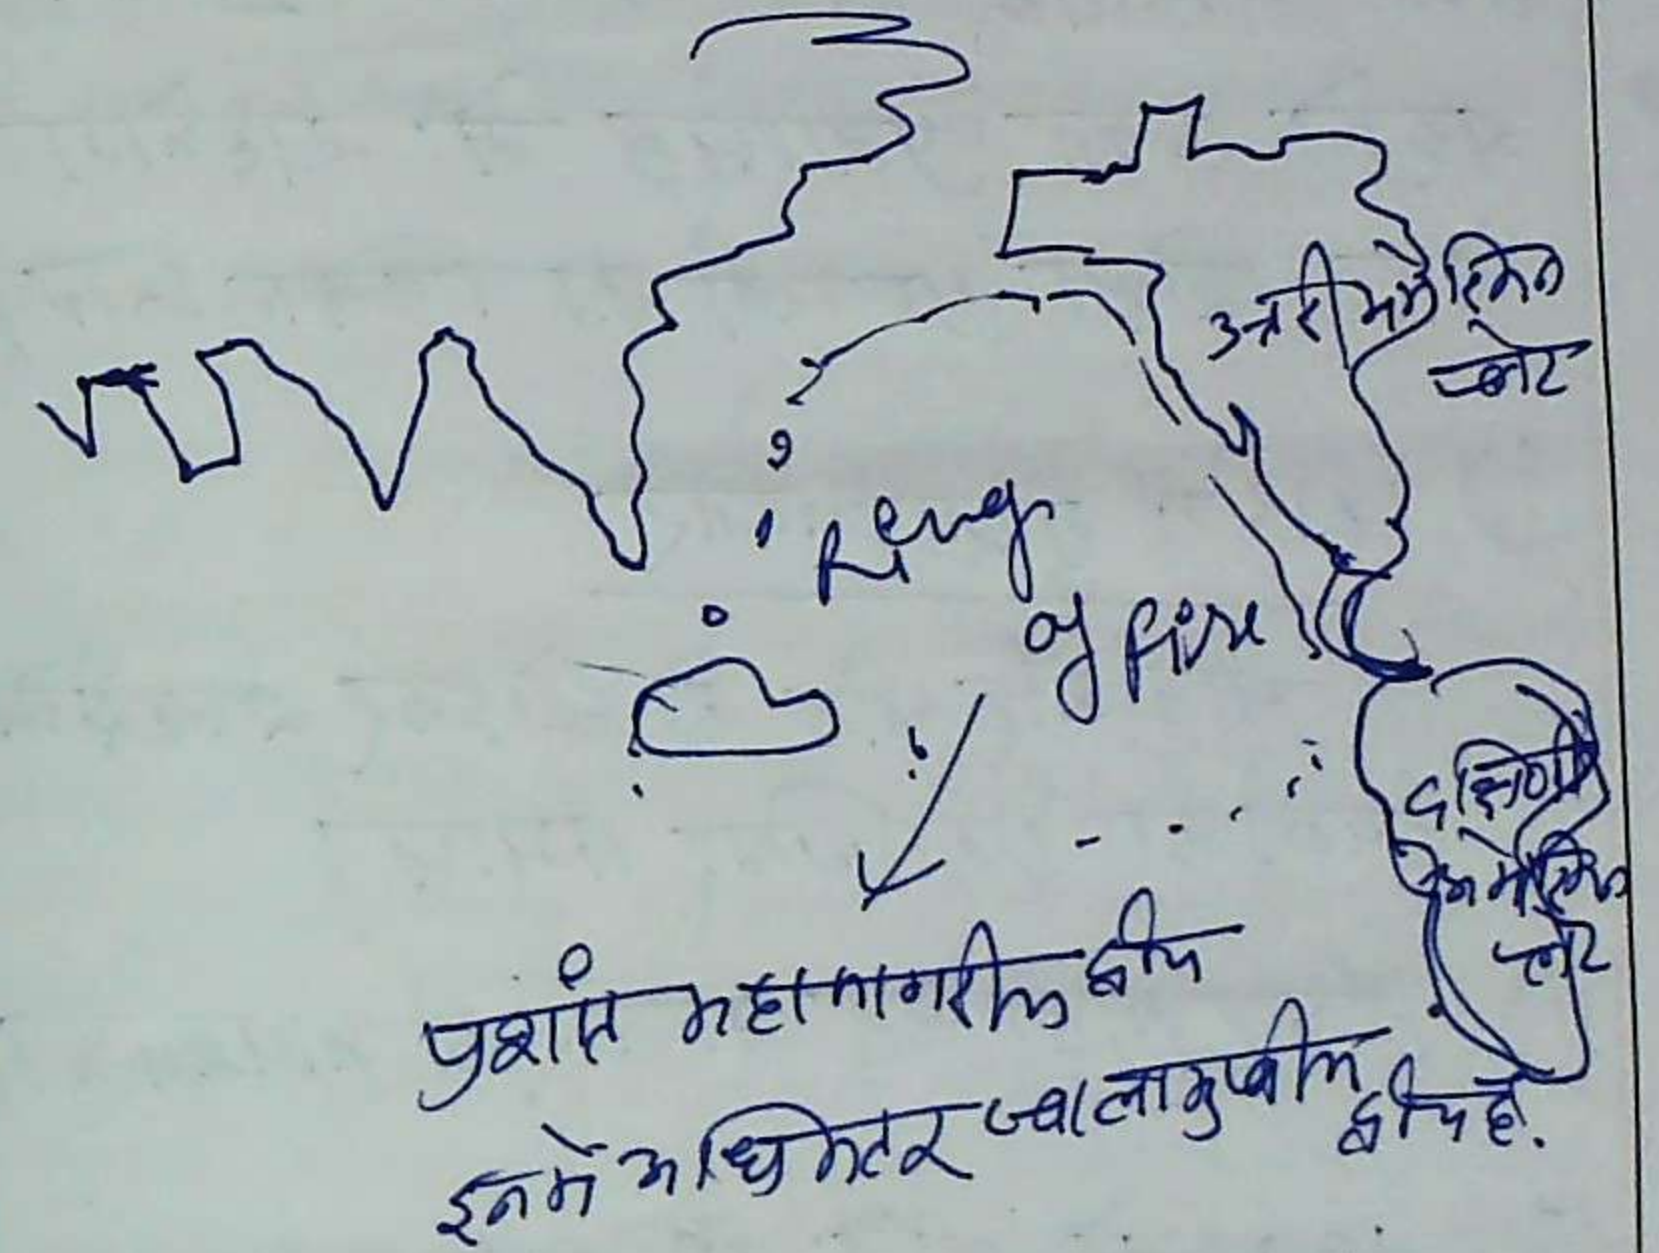 उत्तरी अमेरिकन
प्लेट
Reng
of fire
दक्षिणी
अमेरिकन
प्लेट
प्रशांत महासागरीय द्वीप
इनमें अधिकतर ज्वालामुखीय द्वीप है.